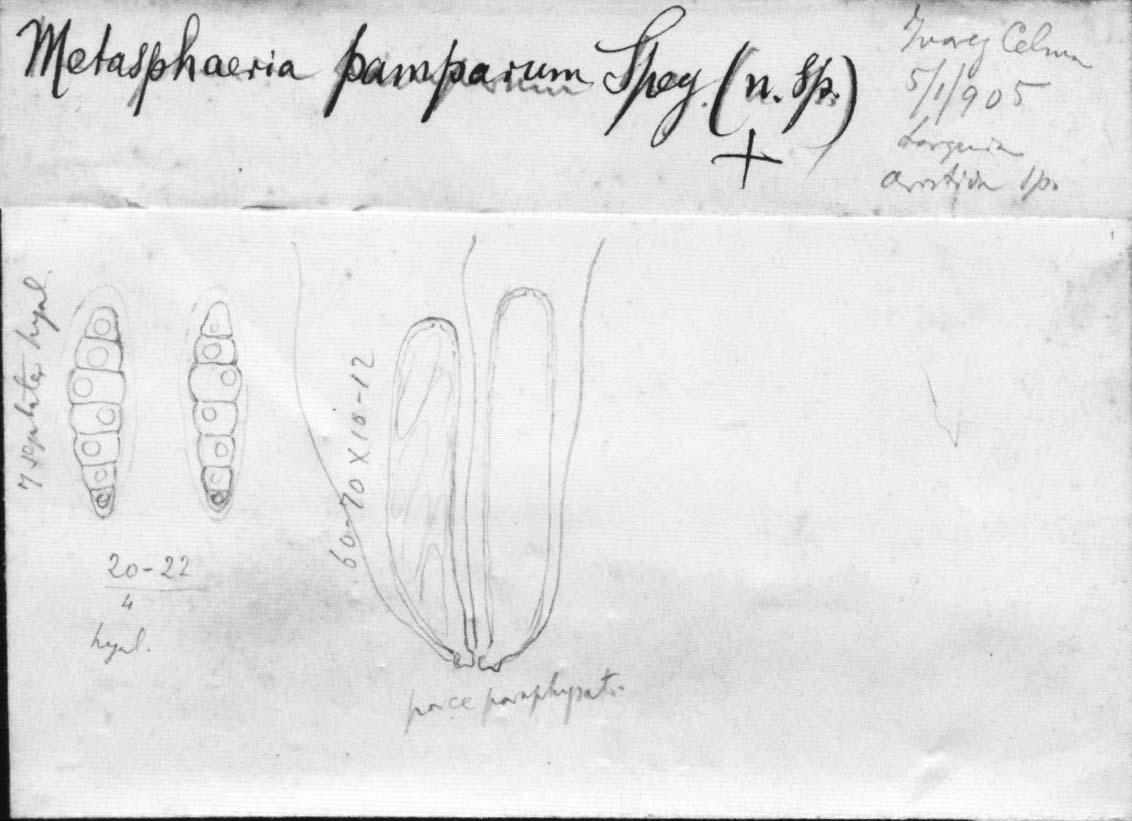 Metasphaeria pamparum Speg. (n. Sp.)
+
Juarez Celman
5/1/905
Aristida sp.
7 septatae hyal.
20-22
4
hyal.
60-70 X 10-12
parce paraphysat.